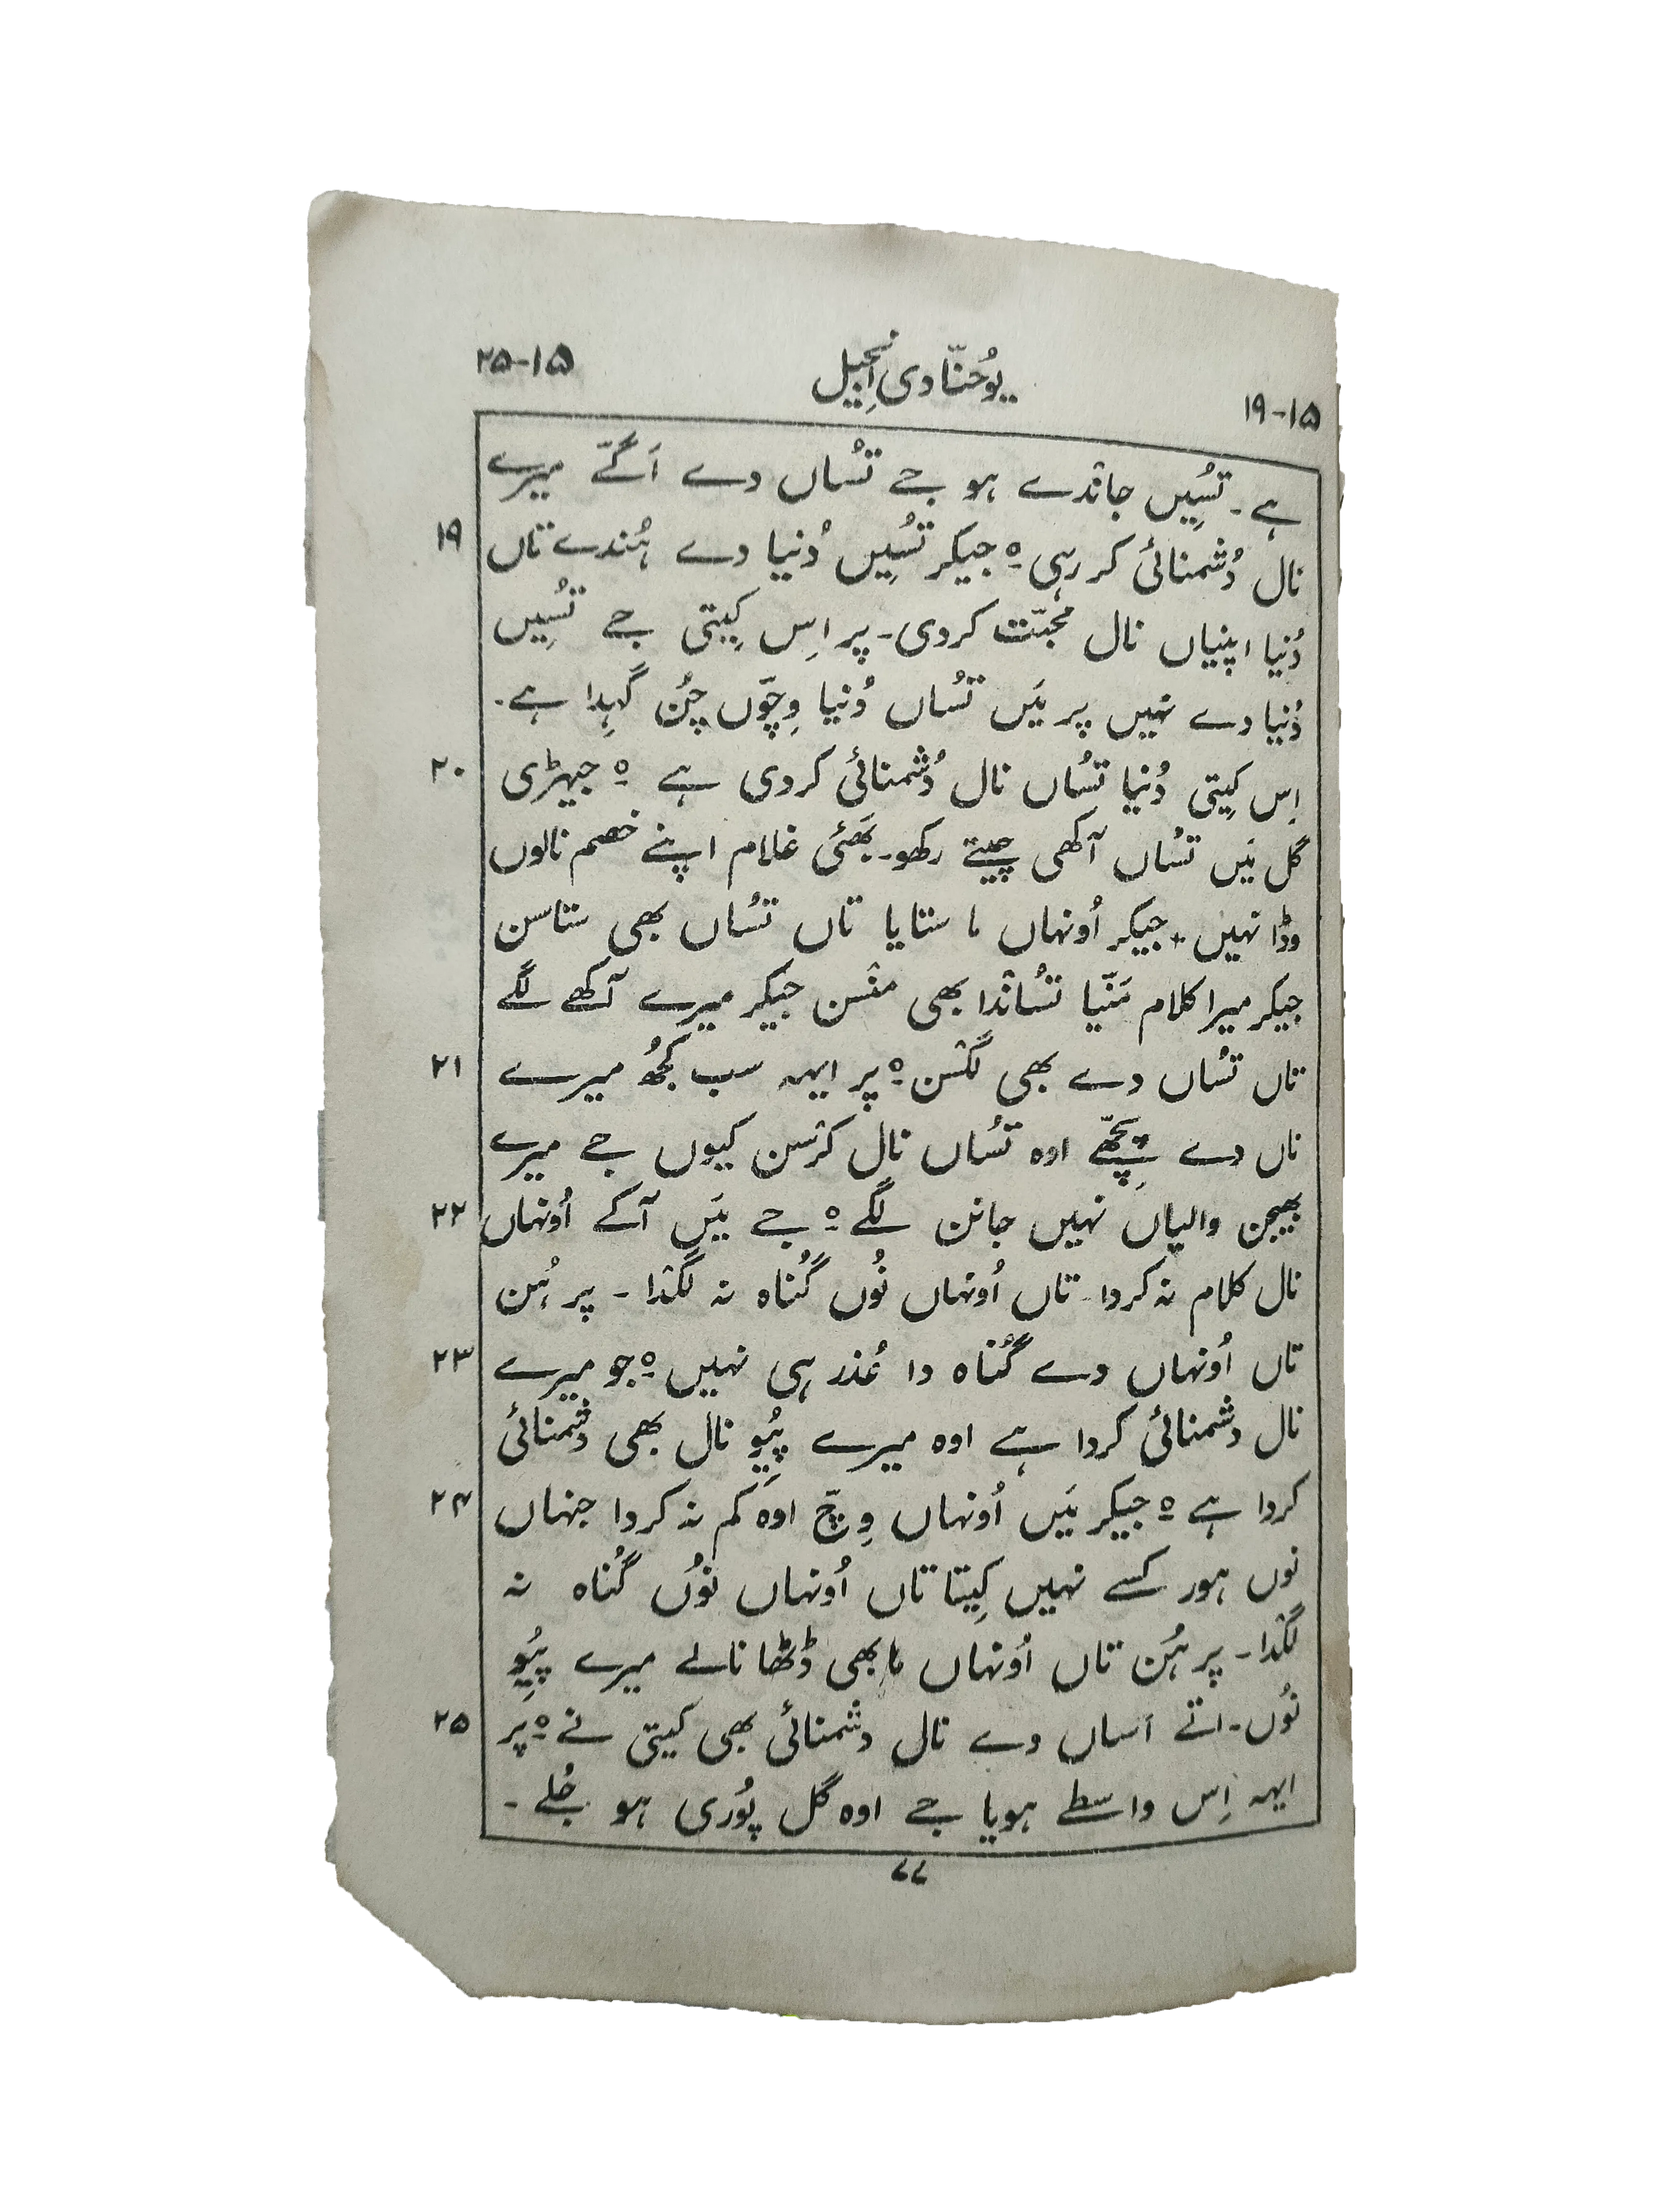 ۱۵-۱۹ یُوحنّا دی اِنجیل ۱۵-۲۵
ہے۔ تسُیِں جاݨدے ہو جے تسُاں دے اَگّے میرے
نال دُشمنائی کر رہی ہ جیکر تسُیِں دُنیا دے ہُندے تاں ۱۹
دُنیا اپنیاں نال محبّت کردی۔ پر اِس کِیتی جے تسُیِں
دُنیا دے نہیں پر مَیں تسُاں دُنیا وِچّوں چُن گہِدا ہے۔
اِس کِیتی دُنیا تسُاں نال دُشمنائی کردی ہے ہ جیہڑی ۲۰
گل مَیں تسُاں آکھی چیتے رکھو۔ بھَئی غلام اپنے خصم نالوں
وڈا نہیں۔ جیکر اُونہاں ما ستایا تاں تسُاں بھی ستاسن
جیکر میرا کلام مَنّیا تسُاݨدا بھی منسن جیکر میرے آکھے لگے
تاں تسُاں دے بھی لگسن ہ پر ایہہ سب کجُھ میرے ۲۱
ناں دے پِچّھے اوہ تسُاں نال کرسن کیوں جے میرے
بھیجن والیاں نہیں جانن لگے ہ جے مَیں آکے اُونہاں ۲۲
نال کلام نہ کردا۔ تاں اُونہاں نُوں گُناہ نہ لگدا ۔ پر ہُن
تاں اُونہاں دے گُناہ دا عُذر ہی نہیں ہ جو میرے ۲۳
نال دشمنائی کردا ہے اوہ میرے پِیُو نال بھی دُشمنائی
کردا ہے ہ جیکر مَیں اُونہاں وِچّ اوہ کم نہ کردا جنہاں ۲۴
نوں ہور کسے نہیں کِیتا تاں اُونہاں نوُں گُناہ نہ
لگدا۔ پر ہُن تاں اُونہاں ما بھی ڈٹھا نالے میرے پِیُو
نوُں۔ اتے اَساں دے نال دشمنائی بھی کیتی نے ہ پر ۲۵
ایہہ اِس واسطے ہویا جے اوہ گل پوُری ہو جُلے ۔
۷۷